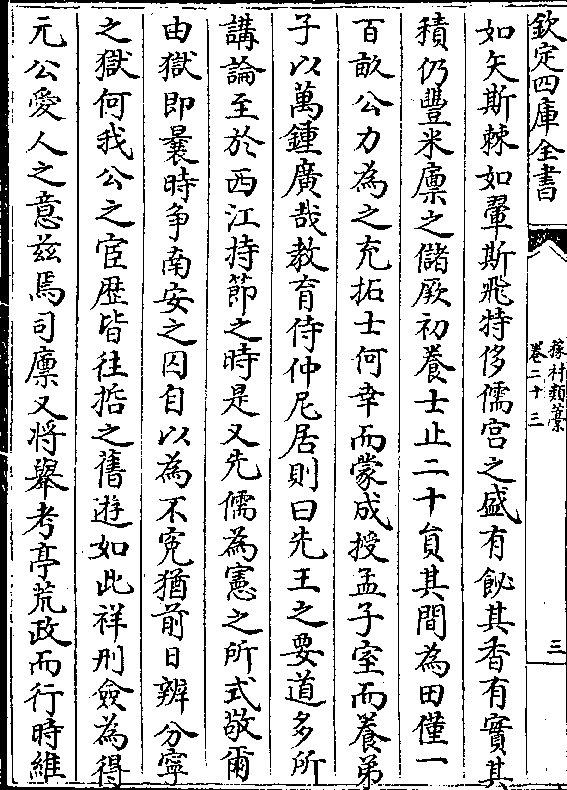 欽定四庫全書
稼村類藁
卷二十三
三
如矢斯棘如翬斯飛特侈儒宫之盛有飶其香有實其
積仍豐米廪之儲厥初養士止二十員其間為田僅一
百畝公力為之充拓士何幸而蒙成授孟子室而養弟
子以萬鍾廣哉教育侍仲尼居則曰先王之要道多所
講論至於西江持節之時是又先儒為憲之所式敬爾
由獄即曩時争南安之囚自以為不寃猶前日辨分寧
之獄何我公之宦歴皆往喆之舊遊如此祥刑僉為得
元公愛人之意兹焉司廪又將舉考亭荒政而行時維